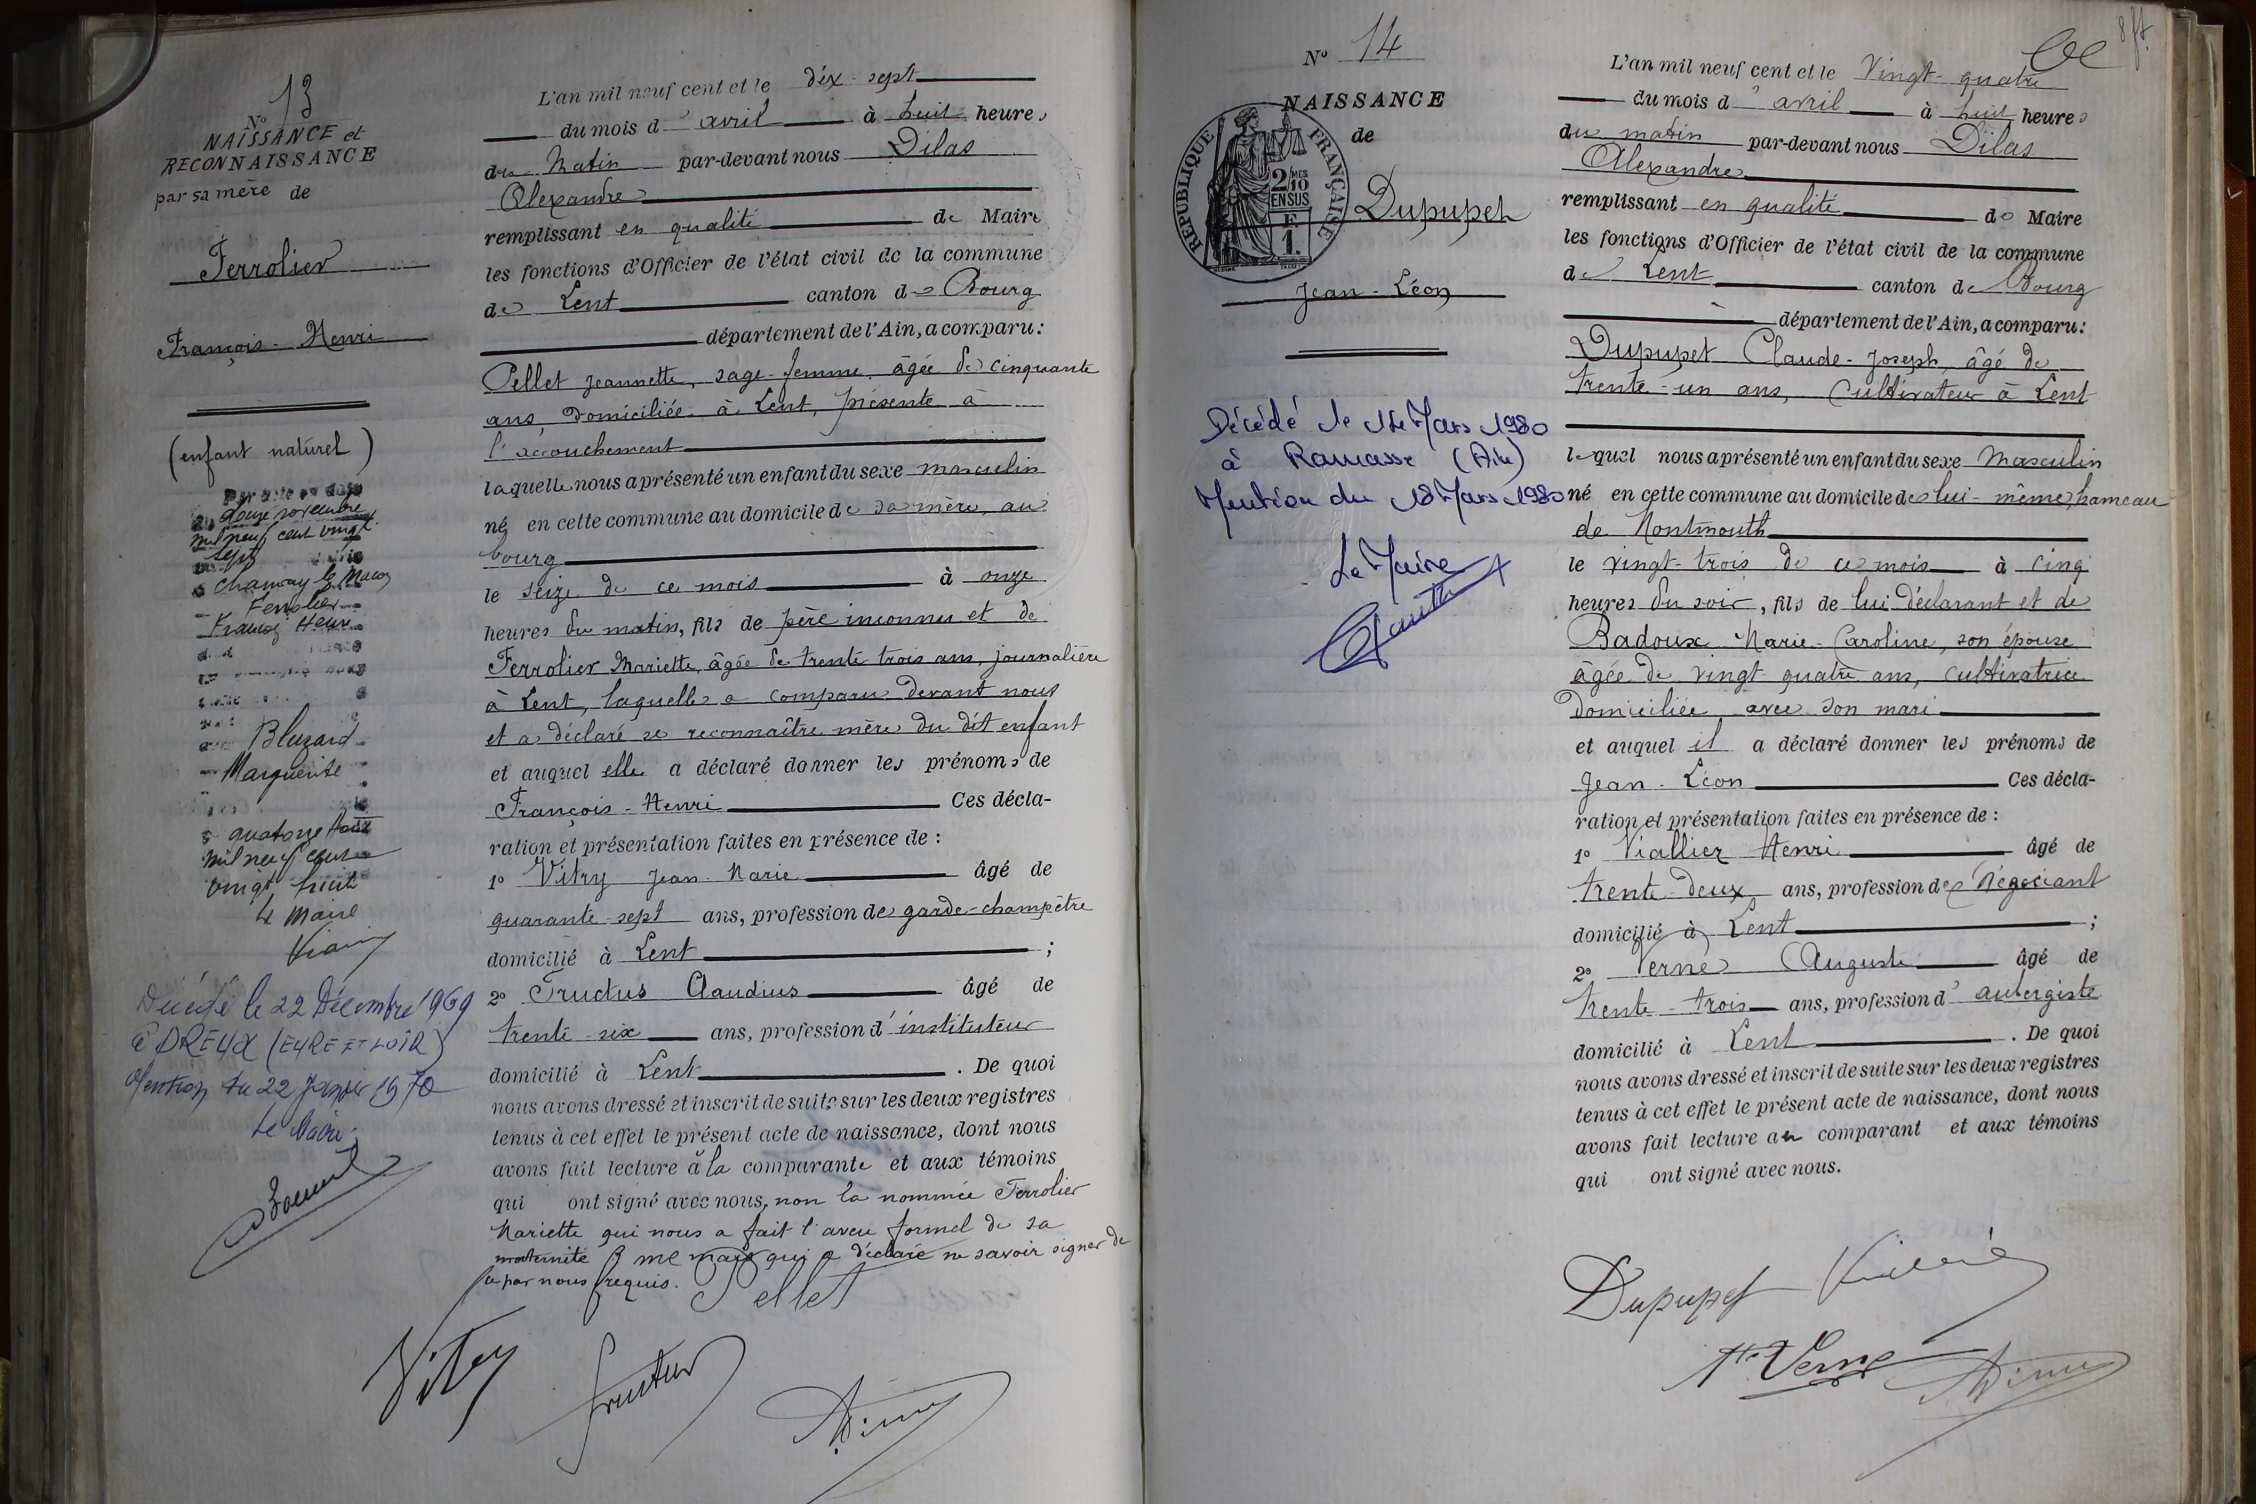 Nº 13
NAISSANCE et
RECONNAISSANCE
par sa mère de
Ferrolier
François-Henri
(enfant naturel)
douze novembre
mil neuf cent vingt
sept
Ferrolier
François Henri
Bluzard
Marguerite
quatorze Août
mil neuf cent
vingt huit
Le Maire
Décédé le 22 Décembre 1969
à DREUX (EURE ET LOIR)
Mention du 22 Janvier 1970
Le Maire
L'an mil neuf cent et le dix-sept
du mois d'avril à huit heures
du Matin par-devant nous Dilas
Alexandre
remplissant en qualité de Maire
les fonctions d'Officier de l'état civil de la commune
de Lent canton de Bourg
département de l'Ain, a comparu:
Pellet Jeannette, sage-femme, âgée de cinquante
ans, domiciliée à Lent, présente à
l'accouchement
laquelle nous a présenté un enfant du sexe masculin
né en cette commune au domicile de sa mère, au
bourg
le seize de ce mois à onze
heures du matin, fils de père inconnu et de
Ferrolier Mariette, âgée de trente trois ans, journalière
à Lent, laquelle a comparu devant nous
et a déclaré se reconnaître mère du dit enfant
et auquel elle a déclaré donner les prénoms de
François-Henri Ces décla-
ration et présentation faites en présence de :
1º Vitry Jean-Marie âgé de
quarante-sept ans, profession de garde-champêtre
domicilié à Lent ;
2º Fructus Claudius âgé de
trente-six ans, profession d'instituteur
domicilié à Lent . De quoi
nous avons dressé et inscrit de suite sur les deux registres
tenus à cet effet le présent acte de naissance, dont nous
avons fait lecture à la comparante et aux témoins
qui ont signé avec nous, non la nommée Ferrolier
Mariette qui nous a fait l'aveu formel de sa
maternité mais qui a déclaré ne savoir signer de
ce par nous requis. Pellet
Vitry
Fructus
Nº 14
NAISSANCE
de
RÉPUBLIQUE FRANÇAISE
2/MES
10
EN SUS
F
1.
Dupupet
Jean-Léon
Décédé le 14 Mars 1980
à Ramasse (Ain)
Mention du 18 Mars 1980
Le Maire
8 ft.
L'an mil neuf cent et le vingt-quatre
du mois d'avril à huit heures
du matin par-devant nous Dilas
Alexandre
remplissant en qualité de Maire
les fonctions d'Officier de l'état civil de la commune
de Lent canton de Bourg
département de l'Ain, a comparu:
Dupupet Claude-Joseph, âgé de
trente-un ans, Cultivateur à Lent
lequel nous a présenté un enfant du sexe Masculin
né en cette commune au domicile de lui-même, hameau
de Montmouth
le vingt-trois de ce mois à cinq
heures du soir, fils de lui déclarant et de
Badoux Marie-Caroline, son épouse
âgée de vingt quatre ans, cultivatrice
domiciliée avec son mari
et auquel il a déclaré donner les prénoms de
Jean-Léon Ces décla-
ration et présentation faites en présence de :
1º Viallier Henri âgé de
trente-deux ans, profession de Négociant
domicilié à Lent ;
2º Verne Auguste âgé de
trente-trois ans, profession d'aubergiste
domicilié à Lent . De quoi
nous avons dressé et inscrit de suite sur les deux registres
tenus à cet effet le présent acte de naissance, dont nous
avons fait lecture au comparant et aux témoins
qui ont signé avec nous.
Dupupet
Verne